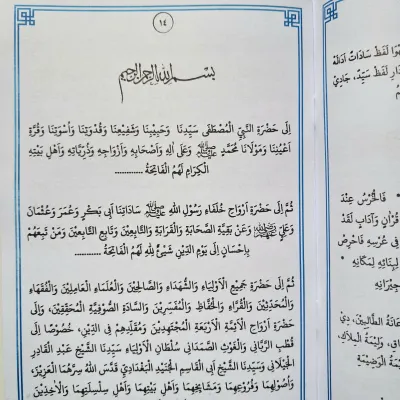 ١٤
بسم الله الرحمن الرحيم
إِلَى حَضْرَةِ النَّبِيِّ الْمُصْطَفَى سَيِّدِنَا وَحَبِيْبِنَا وَشَفِيْعِنَا وَقُدْوَتِنَا وَأُسْوَتِنَا وَقُرَّةِ
أَعْيُنِنَا وَمَوْلَانَا مُحَمَّدٍ ﷺ وَعَلَى اٰلِهِ وَأَصْحَابِهِ وَأَزْوَاجِهِ وَذُرِّيَّاتِهِ وَأَهْلِ بَيْتِهِ
الْكِرَامِ لَهُمُ الْفَاتِحَةُ ............
ثُمَّ إِلَى حَضْرَةِ أَرْوَاحِ خُلَفَاءِ رَسُوْلِ اللهِ ﷺ سَادَاتِنَا أَبِي بَكْرٍ وَعُمَرَ وَعُثْمَانَ
وَعَلِيٍّ وَعَنْ بَقِيَّةِ الصَّحَابَةِ وَالْقَرَابَةِ وَالتَّابِعِيْنَ وَتَابِعِ التَّابِعِيْنَ وَمَنْ تَبِعَهُمْ
بِإِحْسَانٍ إِلَى يَوْمِ الدِّيْنِ شَيْئٌ لِلّٰهِ لَهُمُ الْفَاتِحَةُ ............
ثُمَّ إِلَى حَضْرَةِ جَمِيْعِ الْأَوْلِيَاءِ وَالشُّهَدَاءِ وَالصَّالِحِيْنَ وَالْعُلَمَاءِ الْعَامِلِيْنَ وَالْفُقَهَاءِ
وَالْمُحَدِّثِيْنَ وَالْقُرَّاءِ وَالْحُفَّاظِ وَالْمُفَسِّرِيْنَ وَالسَّادَةِ الصُّوْفِيَّةِ الْمُحَقِّقِيْنَ، وَإِلَى
حَضْرَةِ أَرْوَاحِ الْأَئِمَّةِ الْأَرْبَعَةِ الْمُجْتَهِدِيْنَ وَمُقَلِّدِهِمْ فِي الدِّيْنِ، خُصُوْصًا إِلَى
قُطْبِ الرَّبَّانِي وَالْغَوْثِ الصَّمَدَانِي سُلْطَانِ الْأَوْلِيَاءِ سَيِّدِنَا الشَّيْخِ عَبْدِ الْقَادِرِ
الْجَيْلَانِي وَسَيِّدِنَا الشَّيْخِ أَبِي الْقَاسِمِ الْجُنَيْدِ الْبَغْدَادِي قَدَّسَ اللهُ سِرَّهُمَا الْعَزِيْزَ،
وَأُصُوْلِهِمَا وَفُرُوْعِهِمَا وَمَشَايِخِهِمَا وَأَهْلِ بَيْتِهِمَا وَأَهْلِ سِلْسِلَتِهِمَا وَالْآخِذِيْنَ
لَفْظَ سَادَاتُ
لَفْظَ سَيِّدْ،
فَالْحُرُسْ عِنْدَ
وَآدَابٍ لَقَدْ
فِي عُرْسِهِ فَاحْرِصْ
لِبِنَائِهِ لِمَكَانِهِ
جِيْرَانِهِ
الطَّالِبِيْنَ،